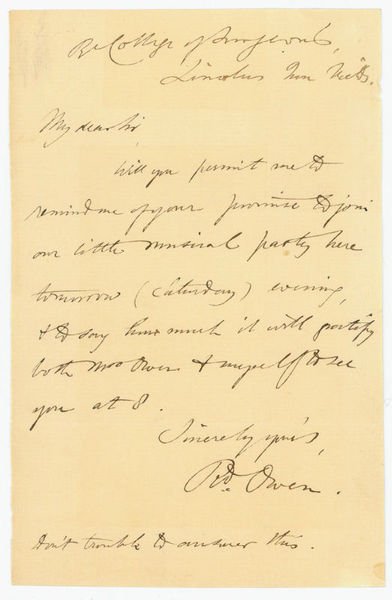 Rl College of Surgeons,
Lincolns Inn Fields.
My dear Sir,
Will you permit me to
remind me of your promise to join
our little musical party here
tomorrow (Saturday) evening,
& to say how much it will gratify
both Mrs Owen & myself to see
you at 8.
Sincerely yrs,
Rd. Owen.
Don't trouble to answer this.